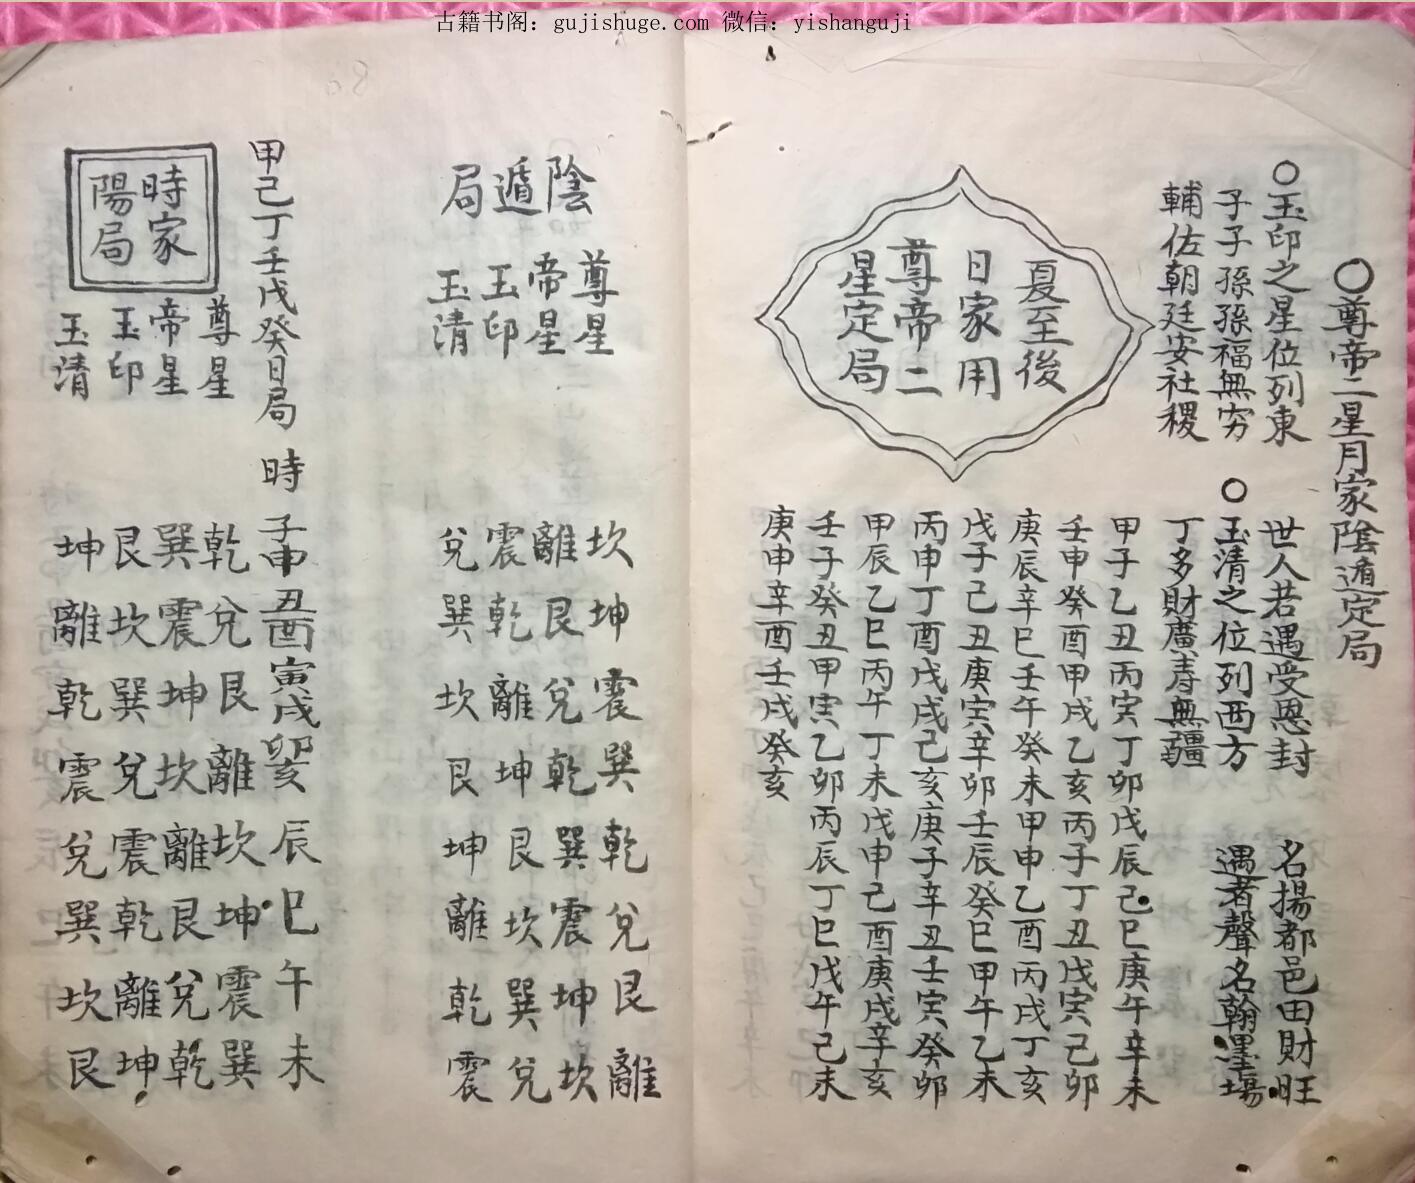 古籍书阁：gujishuge.com 微信：yishanguji
○尊帝二星月家陰遁定局
○玉印之星位列東 世人若遇受恩封 名揚都邑田財旺
子子孫孫福無穷 ○玉清之位列西方 遇者聲名翰墨場
輔佐朝廷安社稷 丁多財廣寿無疆
夏至後
日家用
尊帝二
星定局
甲子乙丑丙寅丁卯戊辰己巳庚午辛未
壬申癸酉甲戌乙亥丙子丁丑戊寅己卯
庚辰辛巳壬午癸未甲申乙酉丙戌丁亥
戊子己丑庚寅辛卯壬辰癸巳甲午乙未
丙申丁酉戊戌己亥庚子辛丑壬寅癸卯
甲辰乙巳丙午丁未戊申己酉庚戌辛亥
壬子癸丑甲寅乙卯丙辰丁巳戊午己未
庚申辛酉壬戌癸亥
陰遁局
尊星 坎坤震巽乾兌艮離
帝星 離艮兌乾巽震坤坎
玉印 震乾離坤艮坎巽兌
玉清 兌巽坎艮坤離乾震
甲己丁壬戊癸日局 時 子申丑酉寅戌卯亥辰巳午未
時家
陽局
尊星 乾兌艮離坎坤震巽
帝星 巽震坤坎離艮兌乾
玉印 艮坎巽兌震乾離坤
玉清 坤離乾震兌巽坎艮